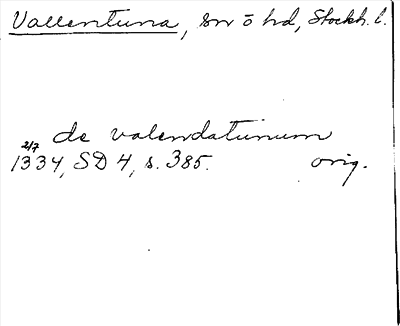 Vallentuna, sn ō hd, Stockh. l.
de valendatunum
2/7
1334, SD 4, s. 385. orig.